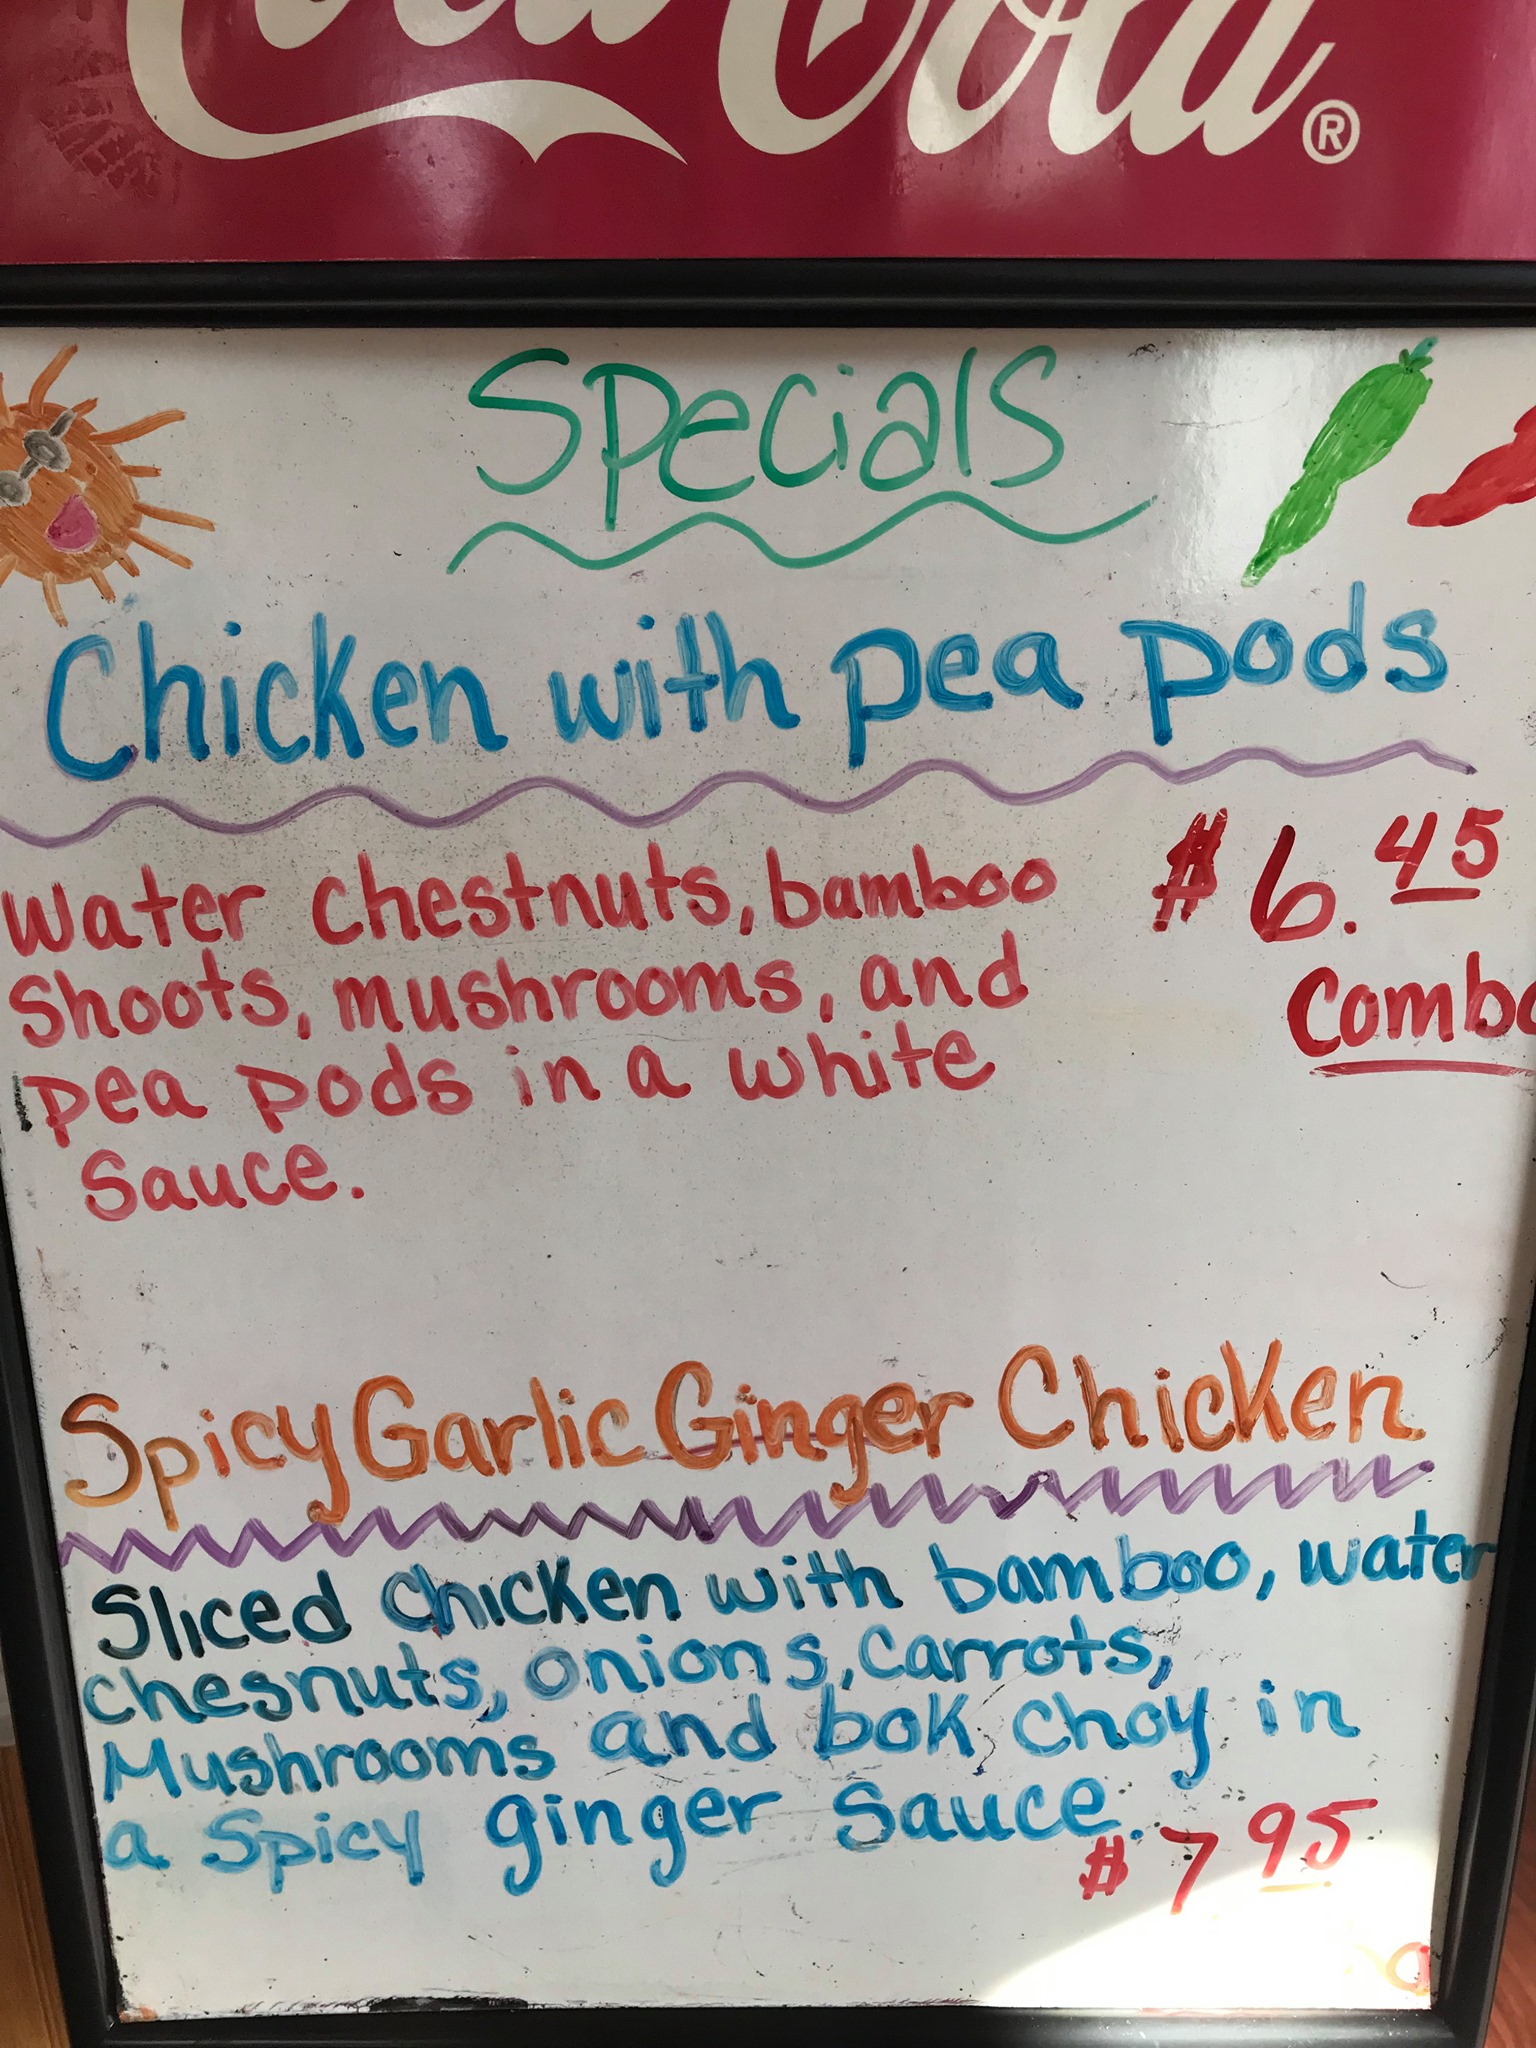 Coca Cola®
Specials
Chicken with pea pods
Water chestnuts, bamboo $6.45
Shoots, mushrooms, and Combo
pea pods in a white
Sauce.
Spicy Garlic Ginger Chicken
Sliced Chicken with bamboo, water
chesnuts, onions, carrots,
Mushrooms and bok choy in
a Spicy ginger Sauce.
$7 95